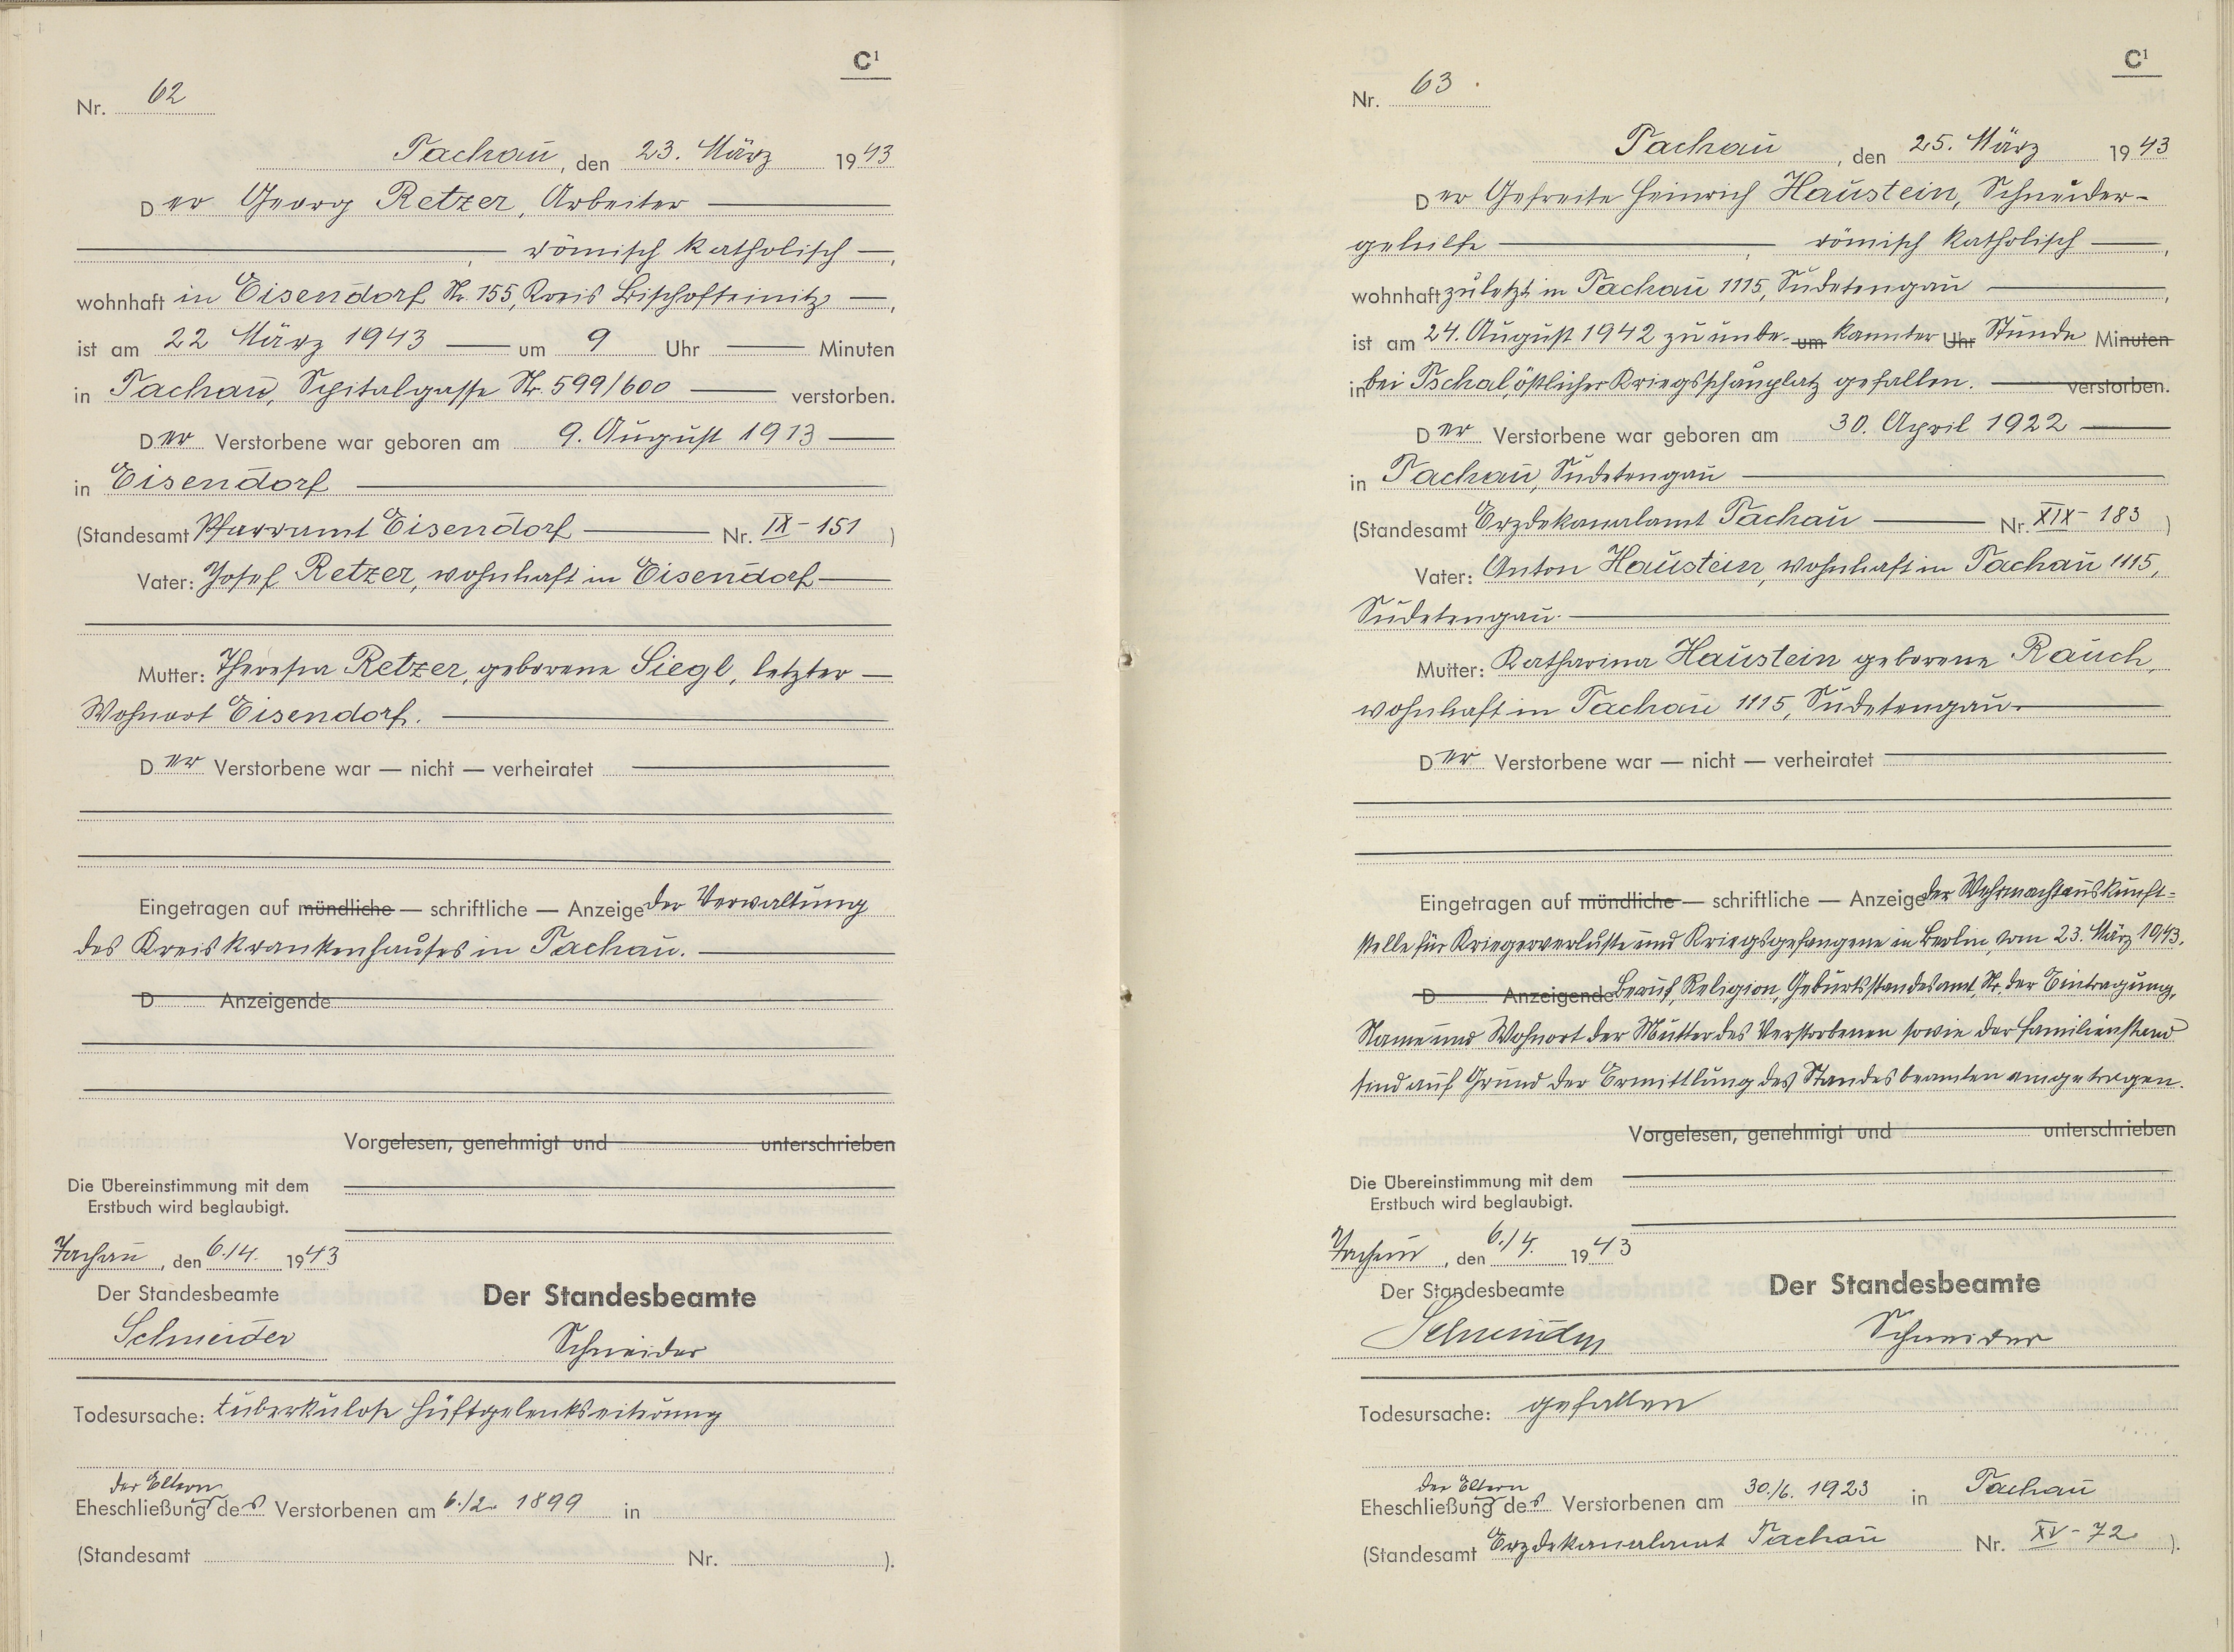 C¹
Nr. 62
Tachau, den 23. März 1943
Der Georg Retzer, Arbeiter
, römisch katholisch ,
wohnhaft in Eisendorf Nr. 155, Kreis Bischofteinitz ,
ist am 22 März 1943 um 9 Uhr Minuten
in Tachau, Spitalgasse Nr. 599/600 verstorben.
Der Verstorbene war geboren am 9. August 1913
in Eisendorf
(Standesamt Pfarramt Eisendorf Nr. IX - 151 )
Vater: Josef Retzer, wohnhaft in Eisendorf
Mutter: Theresia Retzer, geborene Siegl, letzter
Wohnort Eisendorf.
Der Verstorbene war — nicht — verheiratet
Eingetragen auf mündliche — schriftliche — Anzeige der Verwaltung
des Kreiskrankenhauses in Tachau.
D Anzeigende
Vorgelesen, genehmigt und unterschrieben
Die Übereinstimmung mit dem
Erstbuch wird beglaubigt.
Tachau, den 6./4. 1943
Der Standesbeamte
Der Standesbeamte
Schneider
Schneider
Todesursache: tuberkulose Hüftgelenkseiterung
der Eltern
Eheschließung des Verstorbenen am 6./2. 1899 in
(Standesamt Nr. ).
C¹
Nr. 63.
Tachau, den 25. März 1943
Der Gefreite Heinrich Haustein, Schneider-
gehilfe , römisch katholisch ,
wohnhaft zuletzt in Tachau 1115, Sudetengau ,
ist am 24. August 1942 zu unbe- um kannter Uhr Stunde Minuten
in bei Pschal, östlicher Kriegsschauplatz gefallen. verstorben.
Der Verstorbene war geboren am 30. April 1922
in Tachau, Sudetengau
(Standesamt Erzdekanalamt Tachau Nr. XIX - 183 )
Vater: Anton Haustein, wohnhaft in Tachau 1115,
Sudetengau.
Mutter: Katharina Haustein geborene Rauch,
wohnhaft in Tachau 1115, Sudetengau.
Der Verstorbene war — nicht — verheiratet
Eingetragen auf mündliche — schriftliche — Anzeige der Wehrmachtauskunft-
stelle für Kriegerverluste und Kriegsgefangene in Berlin, vom 23. März 1943.
D Anzeigende Beruf, Religion, Geburtsstandesamt, Nr. der Eintragung,
Name und Wohnort der Mutter des Verstorbenen sowie der Familienstand
sind auf Grund der Ermittlung des Standesbeamten eingetragen.
Vorgelesen, genehmigt und unterschrieben
Die Übereinstimmung mit dem
Erstbuch wird beglaubigt.
Tachau, den 6./4. 1943
Der Standesbeamte
Der Standesbeamte
Schneider
Schneider
Todesursache: gefallen
der Eltern
Eheschließung des Verstorbenen am 30./6. 1923 in Tachau
(Standesamt Erzdekanalamt Tachau Nr. XV - 72 ).